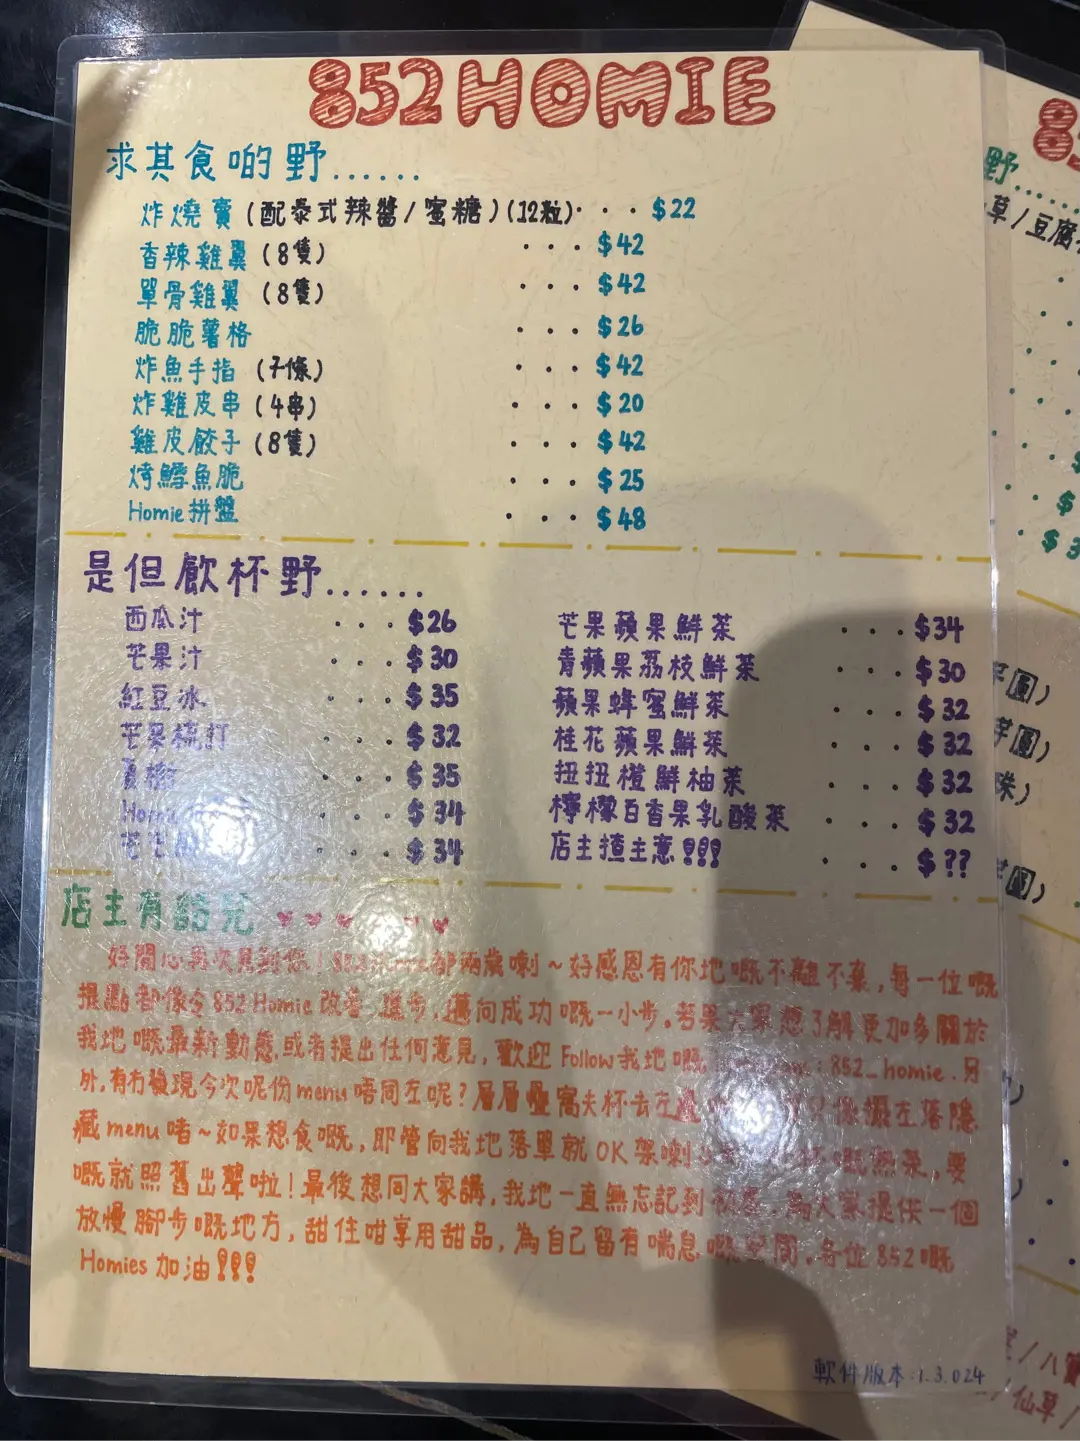 852HOMIE
求其食啲野......
炸燒賣(配泰式辣醬/蜜糖)(12粒)···$22
香辣雞翼(8隻)···$42
單骨雞翼(8隻)···$42
脆脆薯格···$26
炸魚手指(7條)···$42
炸雞皮串(4串)···$20
雞皮餃子(8隻)···$42
烤鱈魚脆···$25
Homie拼盤···$48
是但飲杯野......
西瓜汁···$26
芒果汁···$30
紅豆冰···$35
芒果梳打···$32
···$35
···$34
···$34
芒果蘋果鮮茶···$34
青蘋果荔枝鮮茶···$30
蘋果蜂蜜鮮茶···$32
桂花蘋果鮮茶···$32
扭扭橙鮮柚茶···$32
檸檬百香果乳酸茶···$32
店主揸主意!!!···$??
店主有話兒
好開心再次見到你! 都兩歲喇~好感恩有你地嘅不離不棄,每一位嘅
提點都像令852 Homie改善、進步,邁向成功嘅一小步。若果大家想了解更加多關於
我地嘅最新動態或者提出任何意見,歡迎Follow我地嘅 : 852_homie.另
外,有冇發現今次呢份menu唔同左呢?層層疊窩夫杯去左邊 像攝左落隱
藏menu啫~如果想食嘅,即管向我地落單就OK架喇 嘅熱茶,要
嘅就照舊出聲啦!最後想同大家講,我地一直無忘記到 為大家提供一個
放慢腳步嘅地方,甜住咁享用甜品,為自己留有喘息嘅空間。各位852嘅
Homies加油!!!
軟件版本:1.3.024
852
野......
草/豆腐
$
$
$3
芋圓)
芋圓)
珠)
圓)
/八寶
/仙草/